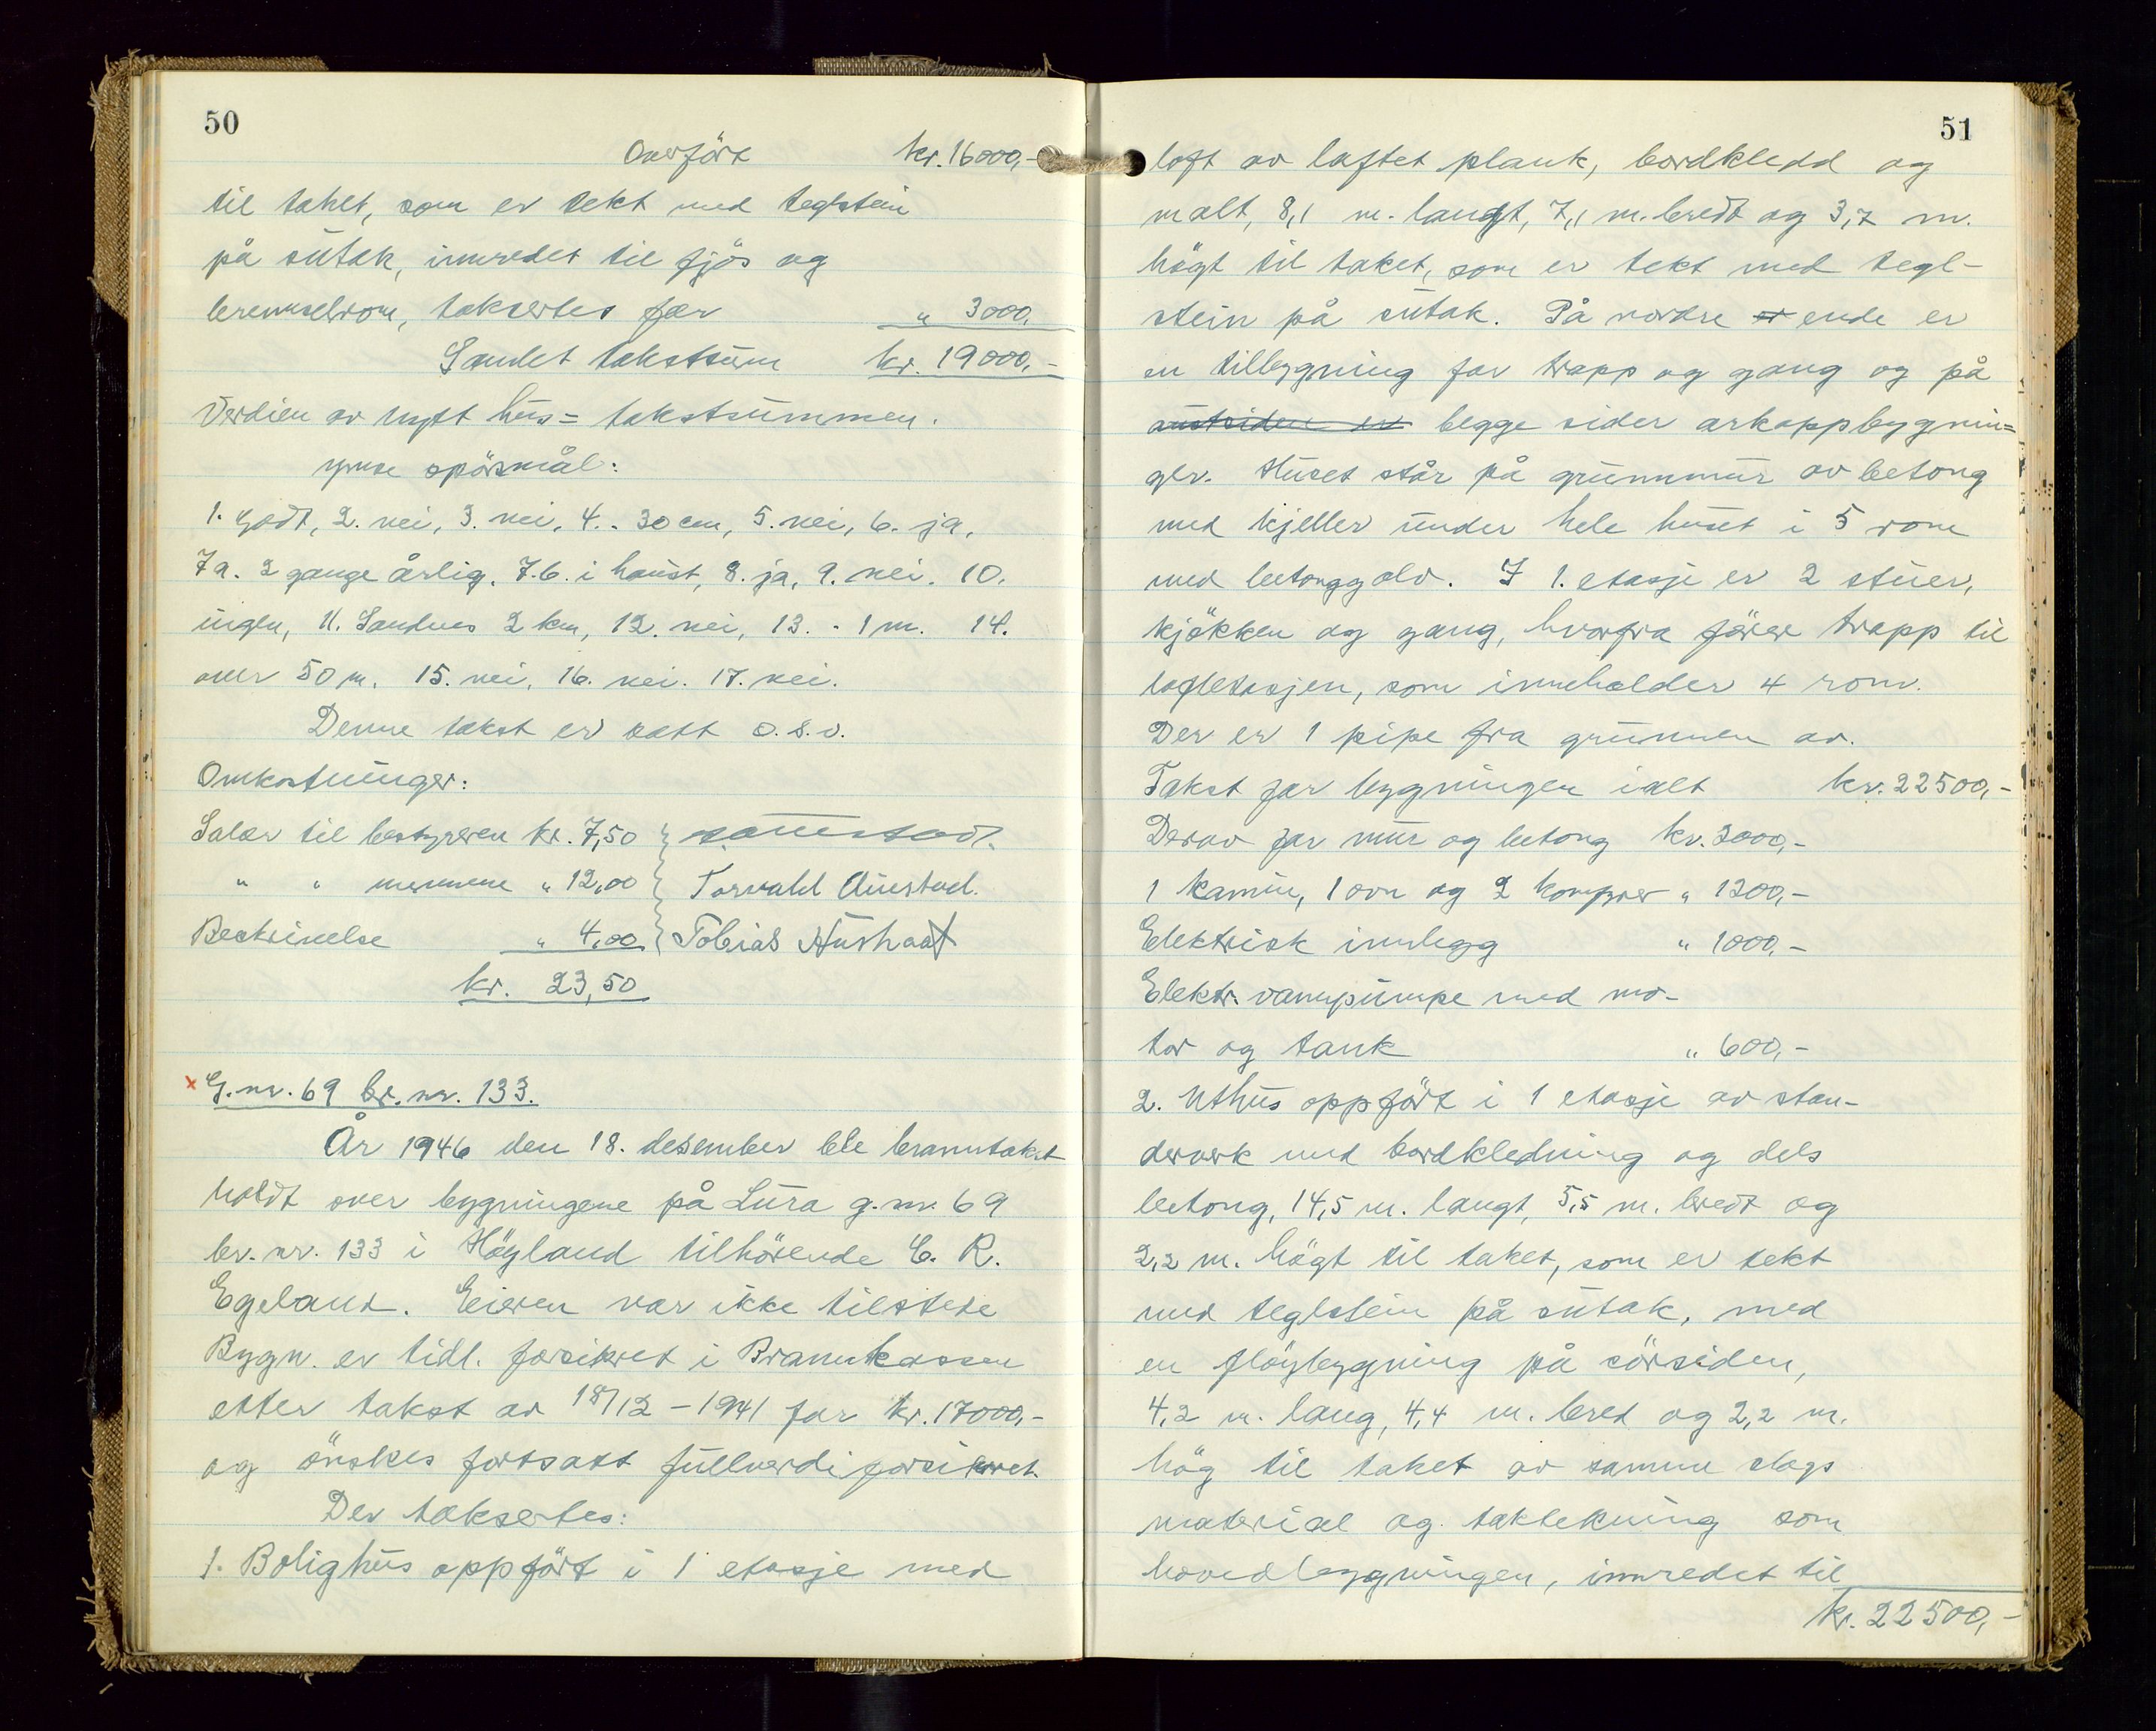 50
Overført kr. 16000,-
til taket, som er tekt med teglstein
på sutak, innredet til fjøs og
brenselrom, taksertes for " 3000.
Samlet takstsum kr. 19000,-
Verdien av nytt hus = takstsummen.
Ymse spörsmål:
1. godt, 2. nei, 3. nei, 4. - 30 cm, 5. nei, 6. ja,
7a. 2 gange årlig. 7.b. i haust, 8. ja, 9. nei. 10.
ingen, 11. Sandnes 2 km, 12. nei, 13. - 1 m. 14.
over 50 m. 15. nei, 16. nei. 17. nei.
Denne takst er satt o.s.v.
Omkostninger:
Salær til bestyreren kr. 7,50
" " mennene " 12,00 Torvald Austad.
Beskrivelse " 4,00 Tobias Aushaat
kr. 23,50
x G.nr. 69 br. nr. 133.
År 1946 den 18. desember ble branntakst
holdt over bygningene på Lura g.nr. 69
br. nr. 133 i Höyland tilhörende C. R.
Egeland. Eieren var ikke tilstede
Bygn. er tidl. forsikret i Brannkassen
etter takst av 18/12 - 1941 for kr. 17000,-
og önskes fortsatt fullverdiforsikret.
Der taksertes:
1. Bolighus oppfört i 1 etasje med
51
loft av laftet plank, bordkledd og
malt, 8,1 m. langt, 7,1 m. bredt og 3,7 m.
högt til taket, som er tekt med tegl-
stein på sutak. På nordre ende er
en tilbygning for trapp og gang og på
austsiden er begge sider arkoppbygnin=
ger. Huset står på grunnmur av betong
med kjeller under hele huset i 5 rom
med betonggolv. I 1. etasje er 2 stuer,
kjökken og gang, hvorfra förer trapp til
loftetasjen, som inneholder 4 rom.
Der er 1 pipe fra grunnen av.
Takst for bygningen ialt kr. 22500,-
Derav for mur og betong kr. 3000,-
1 kamin, 1 ovn og 2 komfyrer " 1200,-
Elektrisk innlegg " 1000,-
Elektr. vannpumpe med mo-
tor og tank " 600,-
2. Uthus oppfört i 1 etasje av stan-
derverk med bordkledning og dels
betong, 14,5 m. langt, 5,5 m. bredt og
2,2 m. högt til taket, som er tekt
med teglstein på sutak, med
en flöybygning på sörsiden,
4,2 m. lang, 4,4 m. bred og 2,2 m.
hög til taket av samme slags
material og taktekning som
hovedbygningen, innredet til
kr. 22500,-